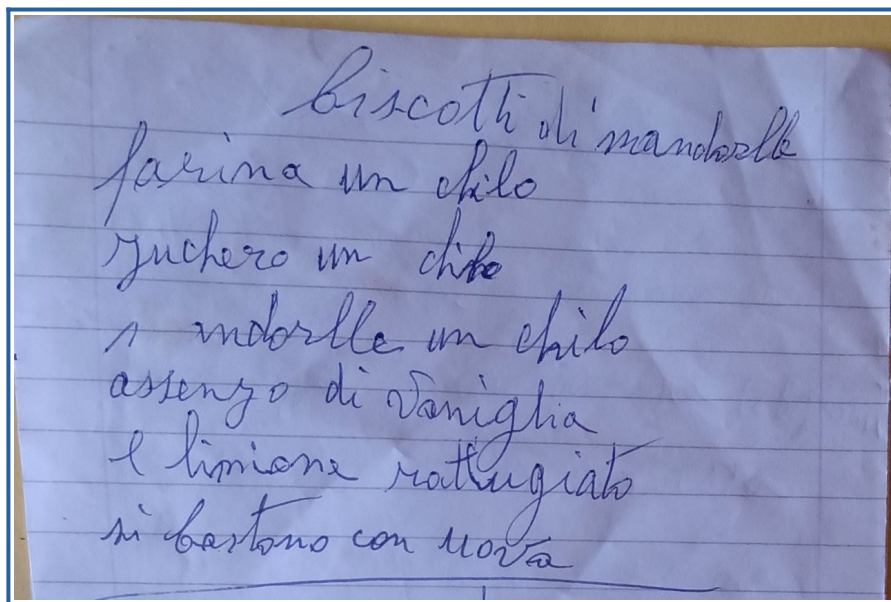 biscotti di mandorlle
farina un chilo
zuchero un chilo
mdorlle un chilo
assenzo di vaniglia
e limione rattugiato
si bastono con uova